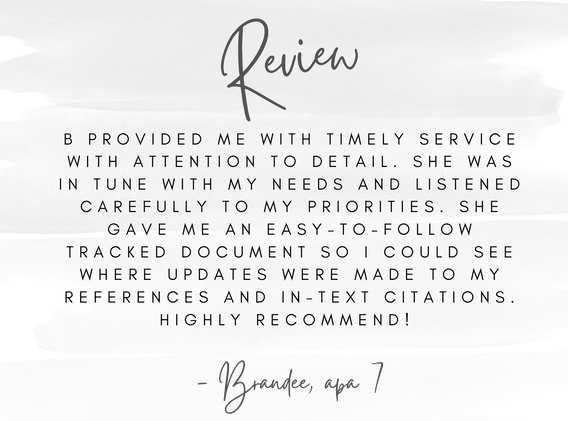 Review
B PROVIDED ME WITH TIMELY SERVICE
WITH ATTENTION TO DETAIL. SHE WAS
IN TUNE WITH MY NEEDS AND LISTENED
CAREFULLY TO MY PRIORITIES. SHE
GAVE ME AN EASY-TO-FOLLOW
TRACKED DOCUMENT SO I COULD SEE
WHERE UPDATES WERE MADE TO MY
REFERENCES AND IN-TEXT CITATIONS.
HIGHLY RECOMMEND!
- Brandee, apa 7